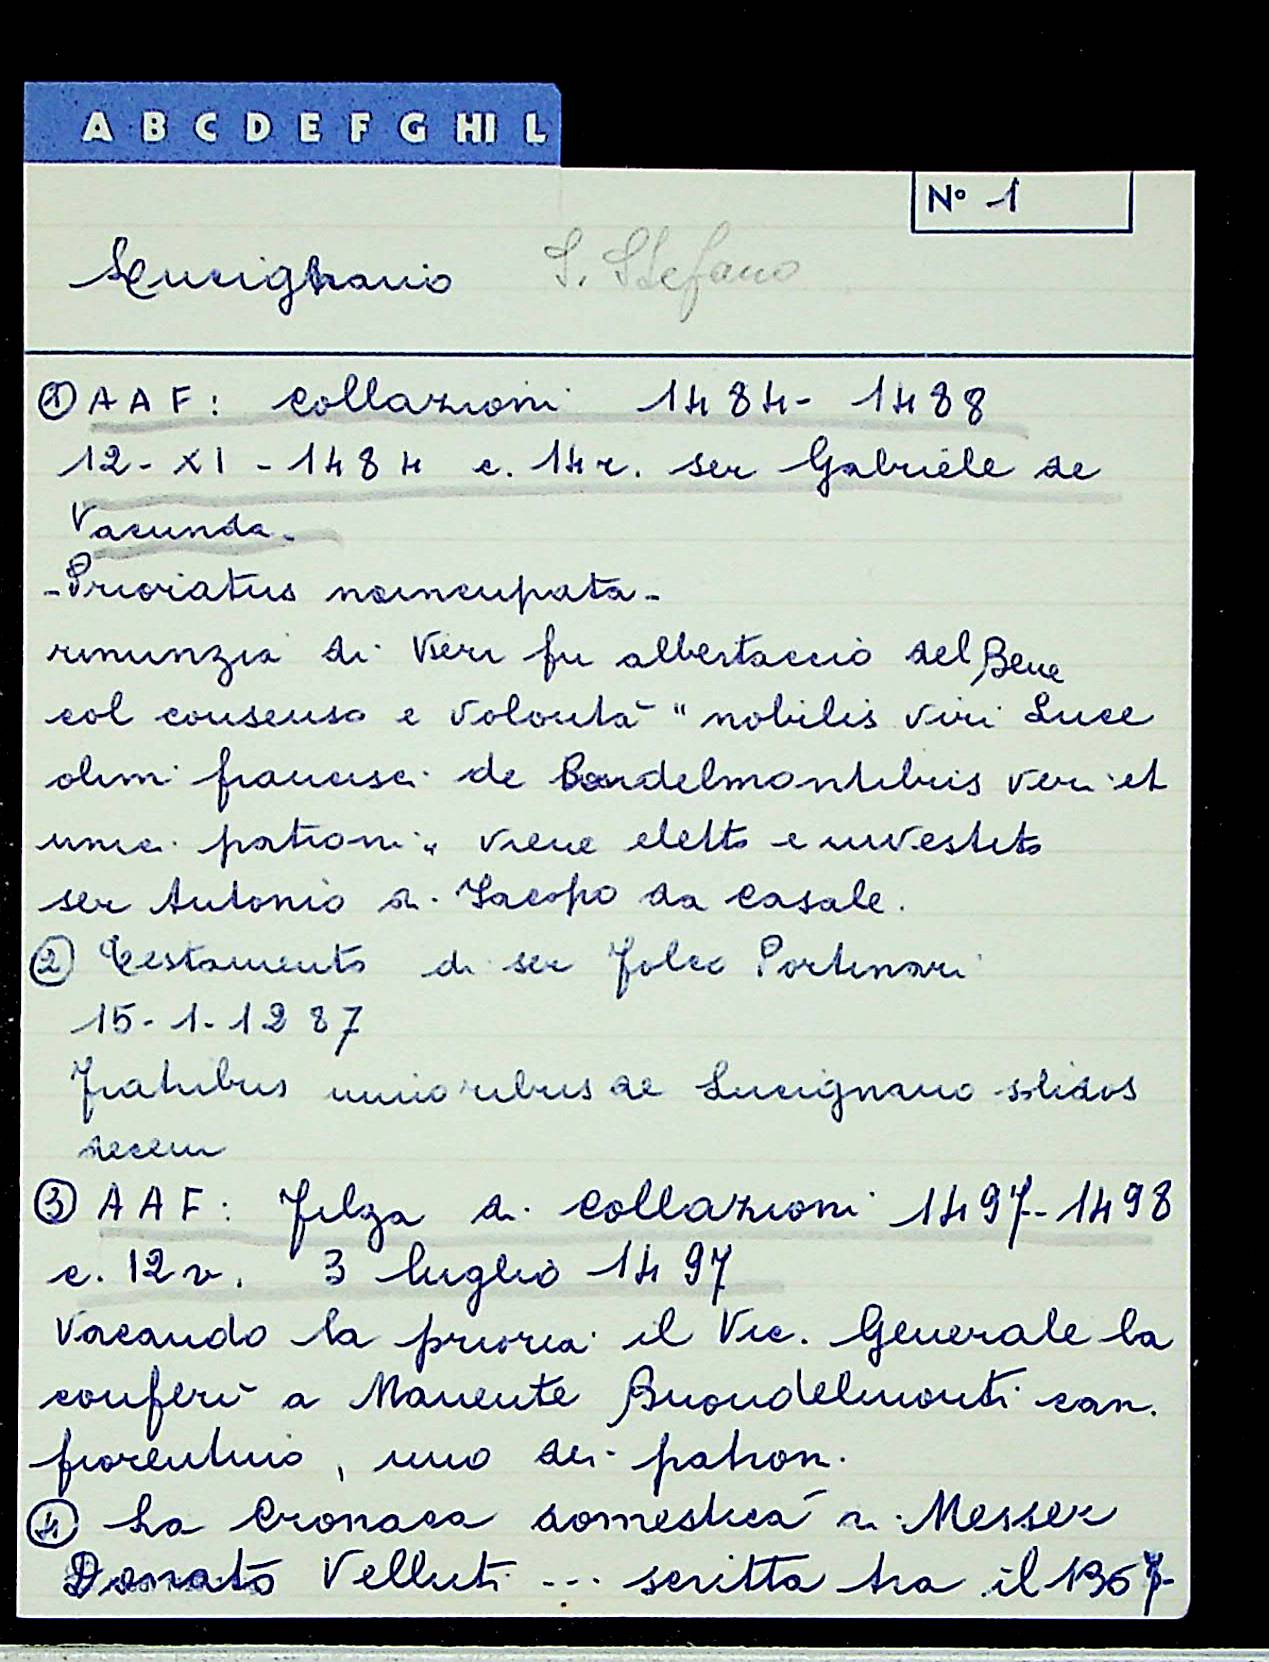 A B C D E F G HI L
N° 1
Lucignano S. Stefano
① AAF: Collazioni 1484-1488
12-XI-1484 c. 14r. ser Gabriele de
Vacunda.
-Prioriatus noincupata-
rinunzia di Vieri fu albertaccio del Bene
col consenso e volontà "nobilis viri Luce
olim francisci de Bondelmontibus veri et
unici patroni" viene eletto e investito
ser Antonio di Iacopo da Casale.
② Testamento di ser Folco Portinari
15-1-1287
Fratribus minoribus de Lucignano solidos
decem
③ AAF: Filza di Collazioni 1497-1498
c. 12v. 3 luglio 1497
Vacando la prioria il Vic. Generale la
conferì a Manente Buondelmonti can.
fiorentino, uno dei patron.
④ La Cronaca domestica di Messer
Donato Velluti ... scritta tra il 1367-